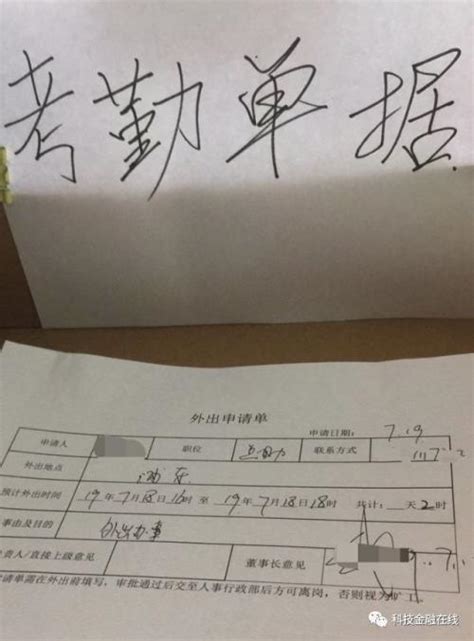 考勤单据
外出申请单
申请日期： 7.19
申请人 职位 联系方式
外出地点
预计外出时间 19年7月18日16时 至 19年7月18日18时 共计：天2时
事由及目的 外出办事
责人/直接上级意见 董事长意见
请单需在外出前填写，审批通过后交至人事行政部后方可离岗，否则视为旷工
科技金融在线